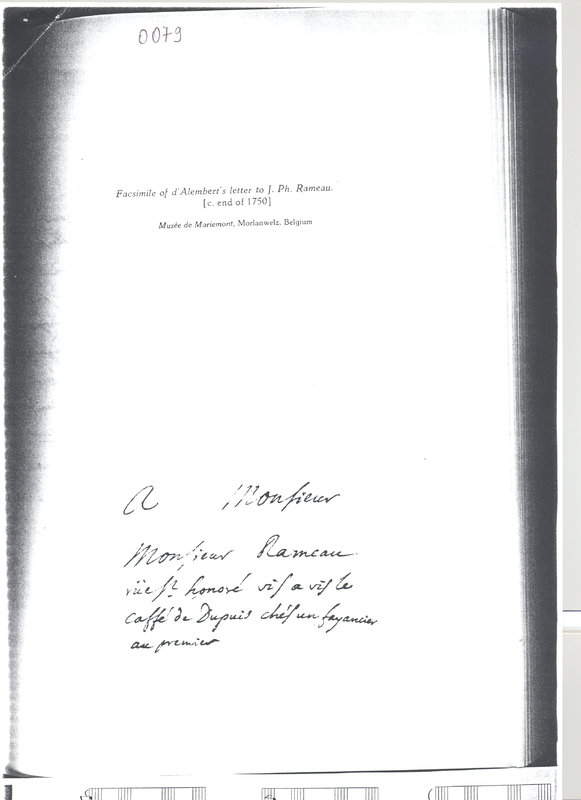 0079
Facsimile of d'Alembert's letter to J. Ph. Rameau.
[c. end of 1750]
Musée de Mariemont, Morlanwelz, Belgium
A Monsieur
Monsieur Rameau
rüe St honoré vis a vis le
caffé de Dupuis chés un fayancier
au premier